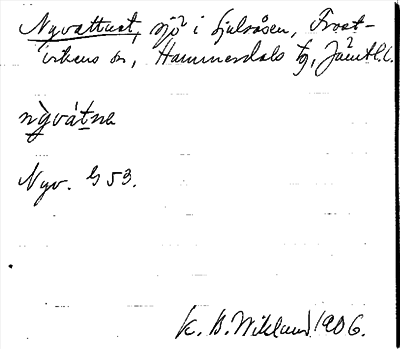 Nyvattnet, sjö i Ljulåsen, Frost-
vikens sn, Hammerdals tg, Jämtl. l.
nỳvátna
Nyv. G 53.
K. B. Wiklund 1906.